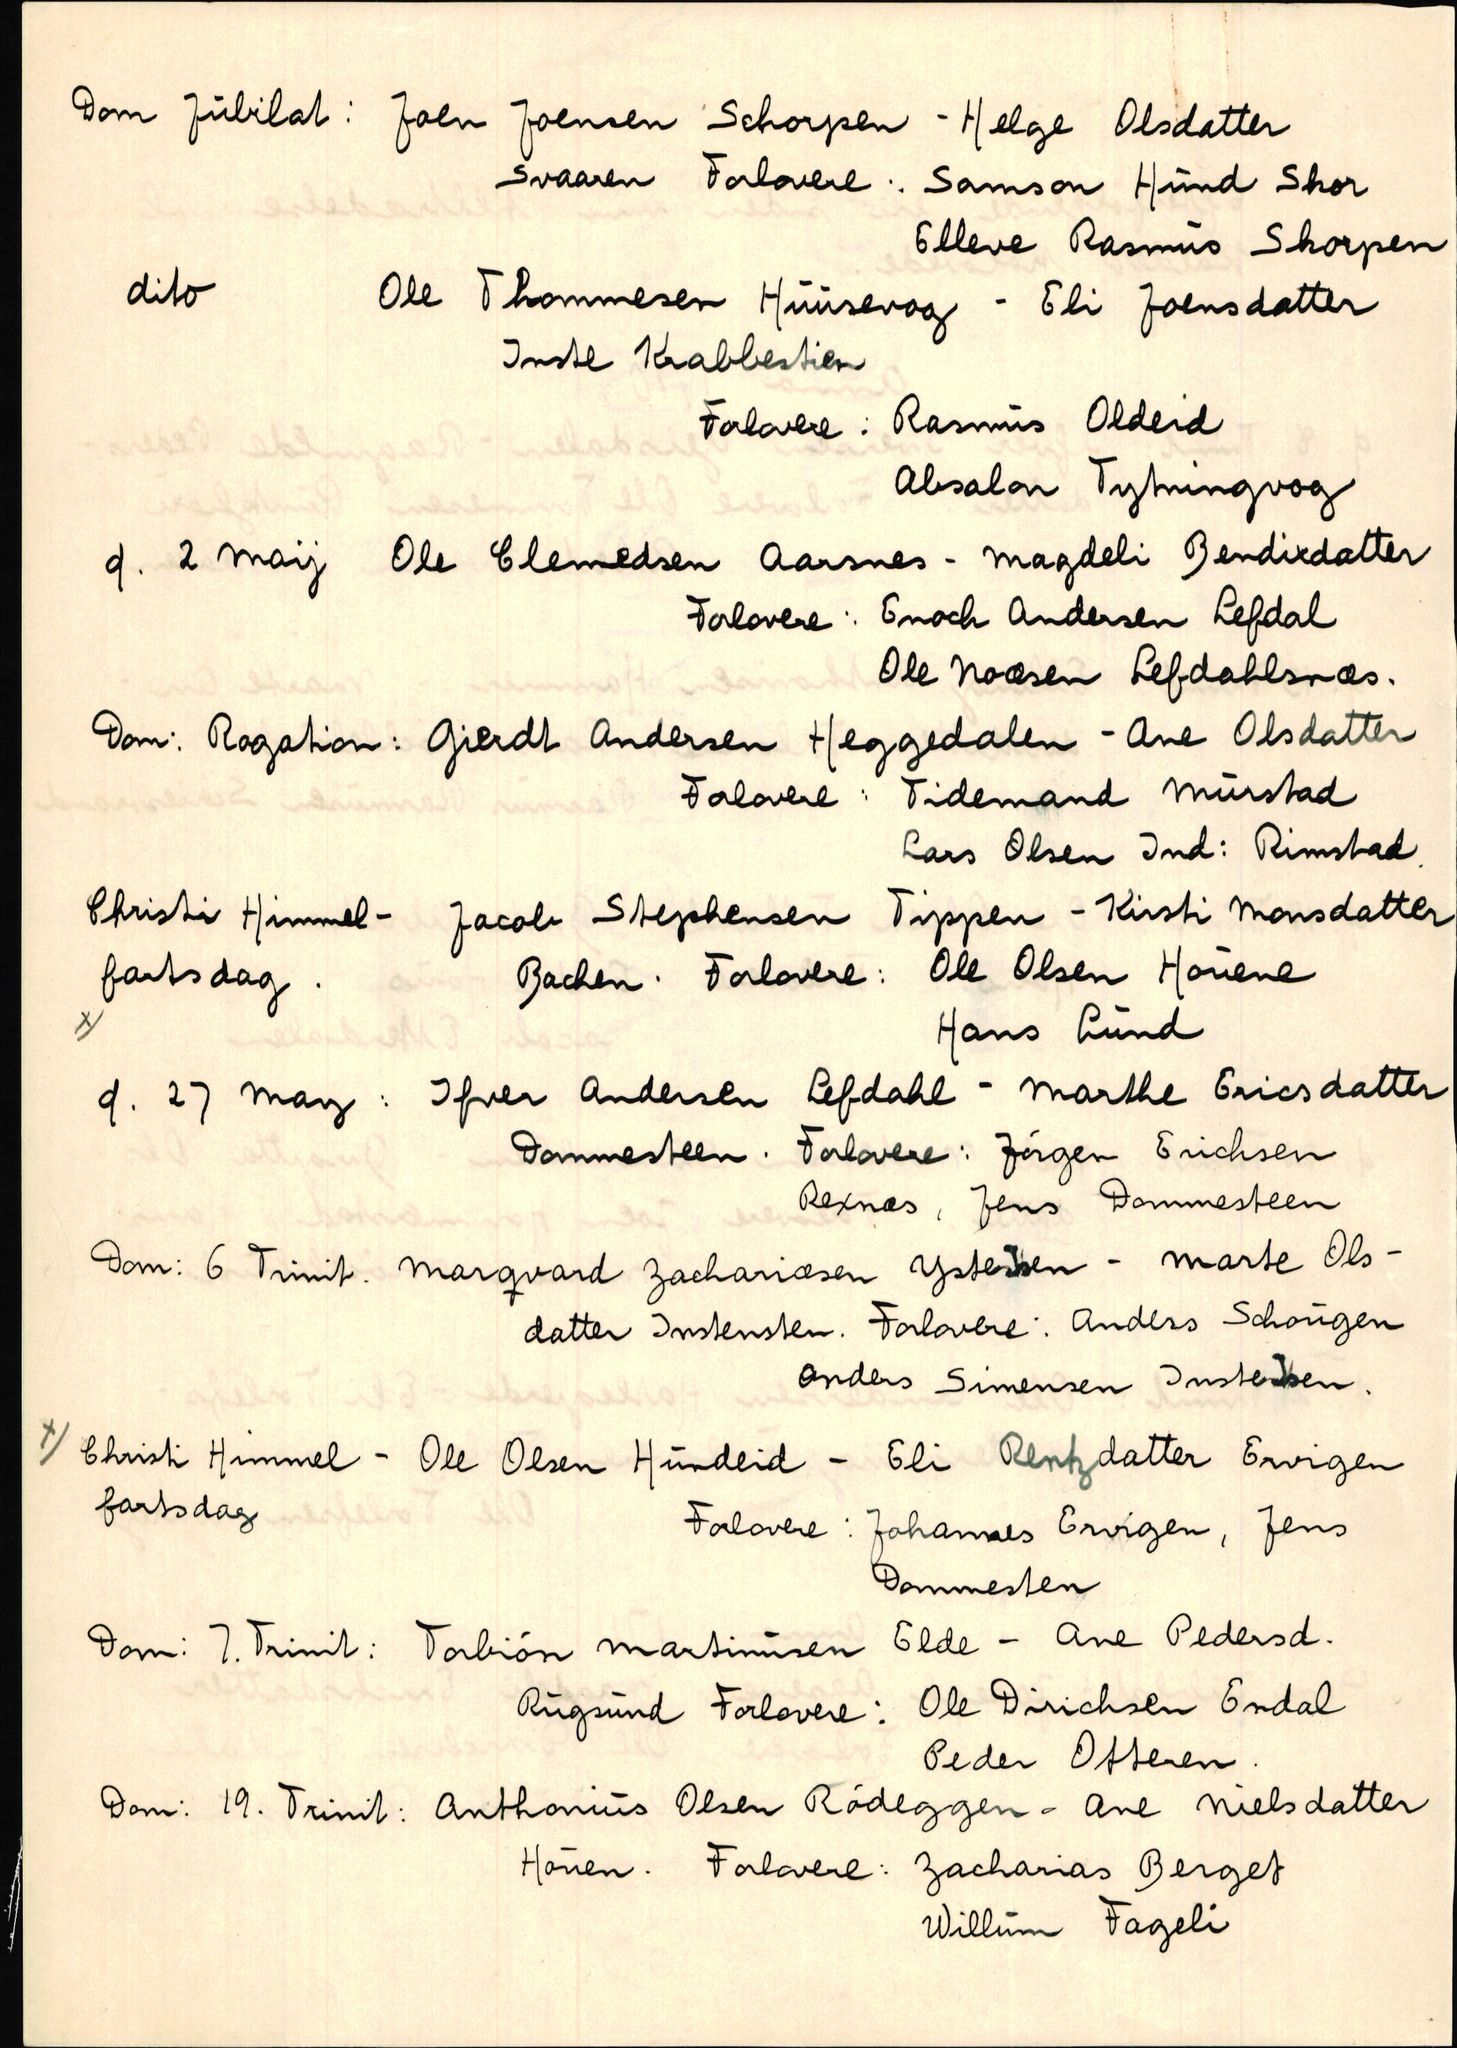 Dom Jübilat: Joen Joensen Schorpen - Helge Olsdatter
Svaaren Forlovere: Samson Hünd Skor
Elleve Rasmüs Skorpen
dito Ole Thommesen Hüüsevog - Eli Joensdatter
Inste Krabbestien
Forlovere: Rasmüs Oldeid
Absalon Tytningvog
d. 2 Maij Ole Clemedsen Aarsnes - Magdeli Bendixdatter
Forlovere: Enoch Andersen Lefdal
Ole Noæsen Lefdahlsnæs.
Dom: Rogation: Gierdt Andersen Heggedalen - Ane Olsdatter
Forlovere: Tidemand Mürstad
Lars Olsen Ind: Rimstad.
Christi Himmel- Jacob Stephensen Tippen - Kirsti Monsdatter
fartsdag. Bachen. Forlovere: Ole Olsen Hoüene
x) Hans Lünd
d. 27 May: Ifver Andersen Lefdahl - Marthe Ericsdatter
Dommesteen. Forlovere: Jörgen Erichsen
Rexnæs, Jens Dommesteen
Dom: 6 Trinit. Marqvard Zachariæsen - Marte Ols-
datter Instensten. Forlovere: Anders Schoügen
Anders Simensen
x) Christi Himmel- Ole Olsen Hündeid - Eli Rentzdatter Ervigen
fartsdag Forlovere: Johannes Ervigen, Jens
Dommesten
Dom: 7. Trinit: Torbiön Martinüsen Elde - Ane Pedersd.
Rügsünd Forlovere: Ole Dirichsen Endal
Peder Otteren.
Dom: 19. Trinit: Anthoniüs Olsen Rödeggen - Ane Nielsdatter
Hoüen. Forlovere: Zacharias Berget
Willüm Fageli